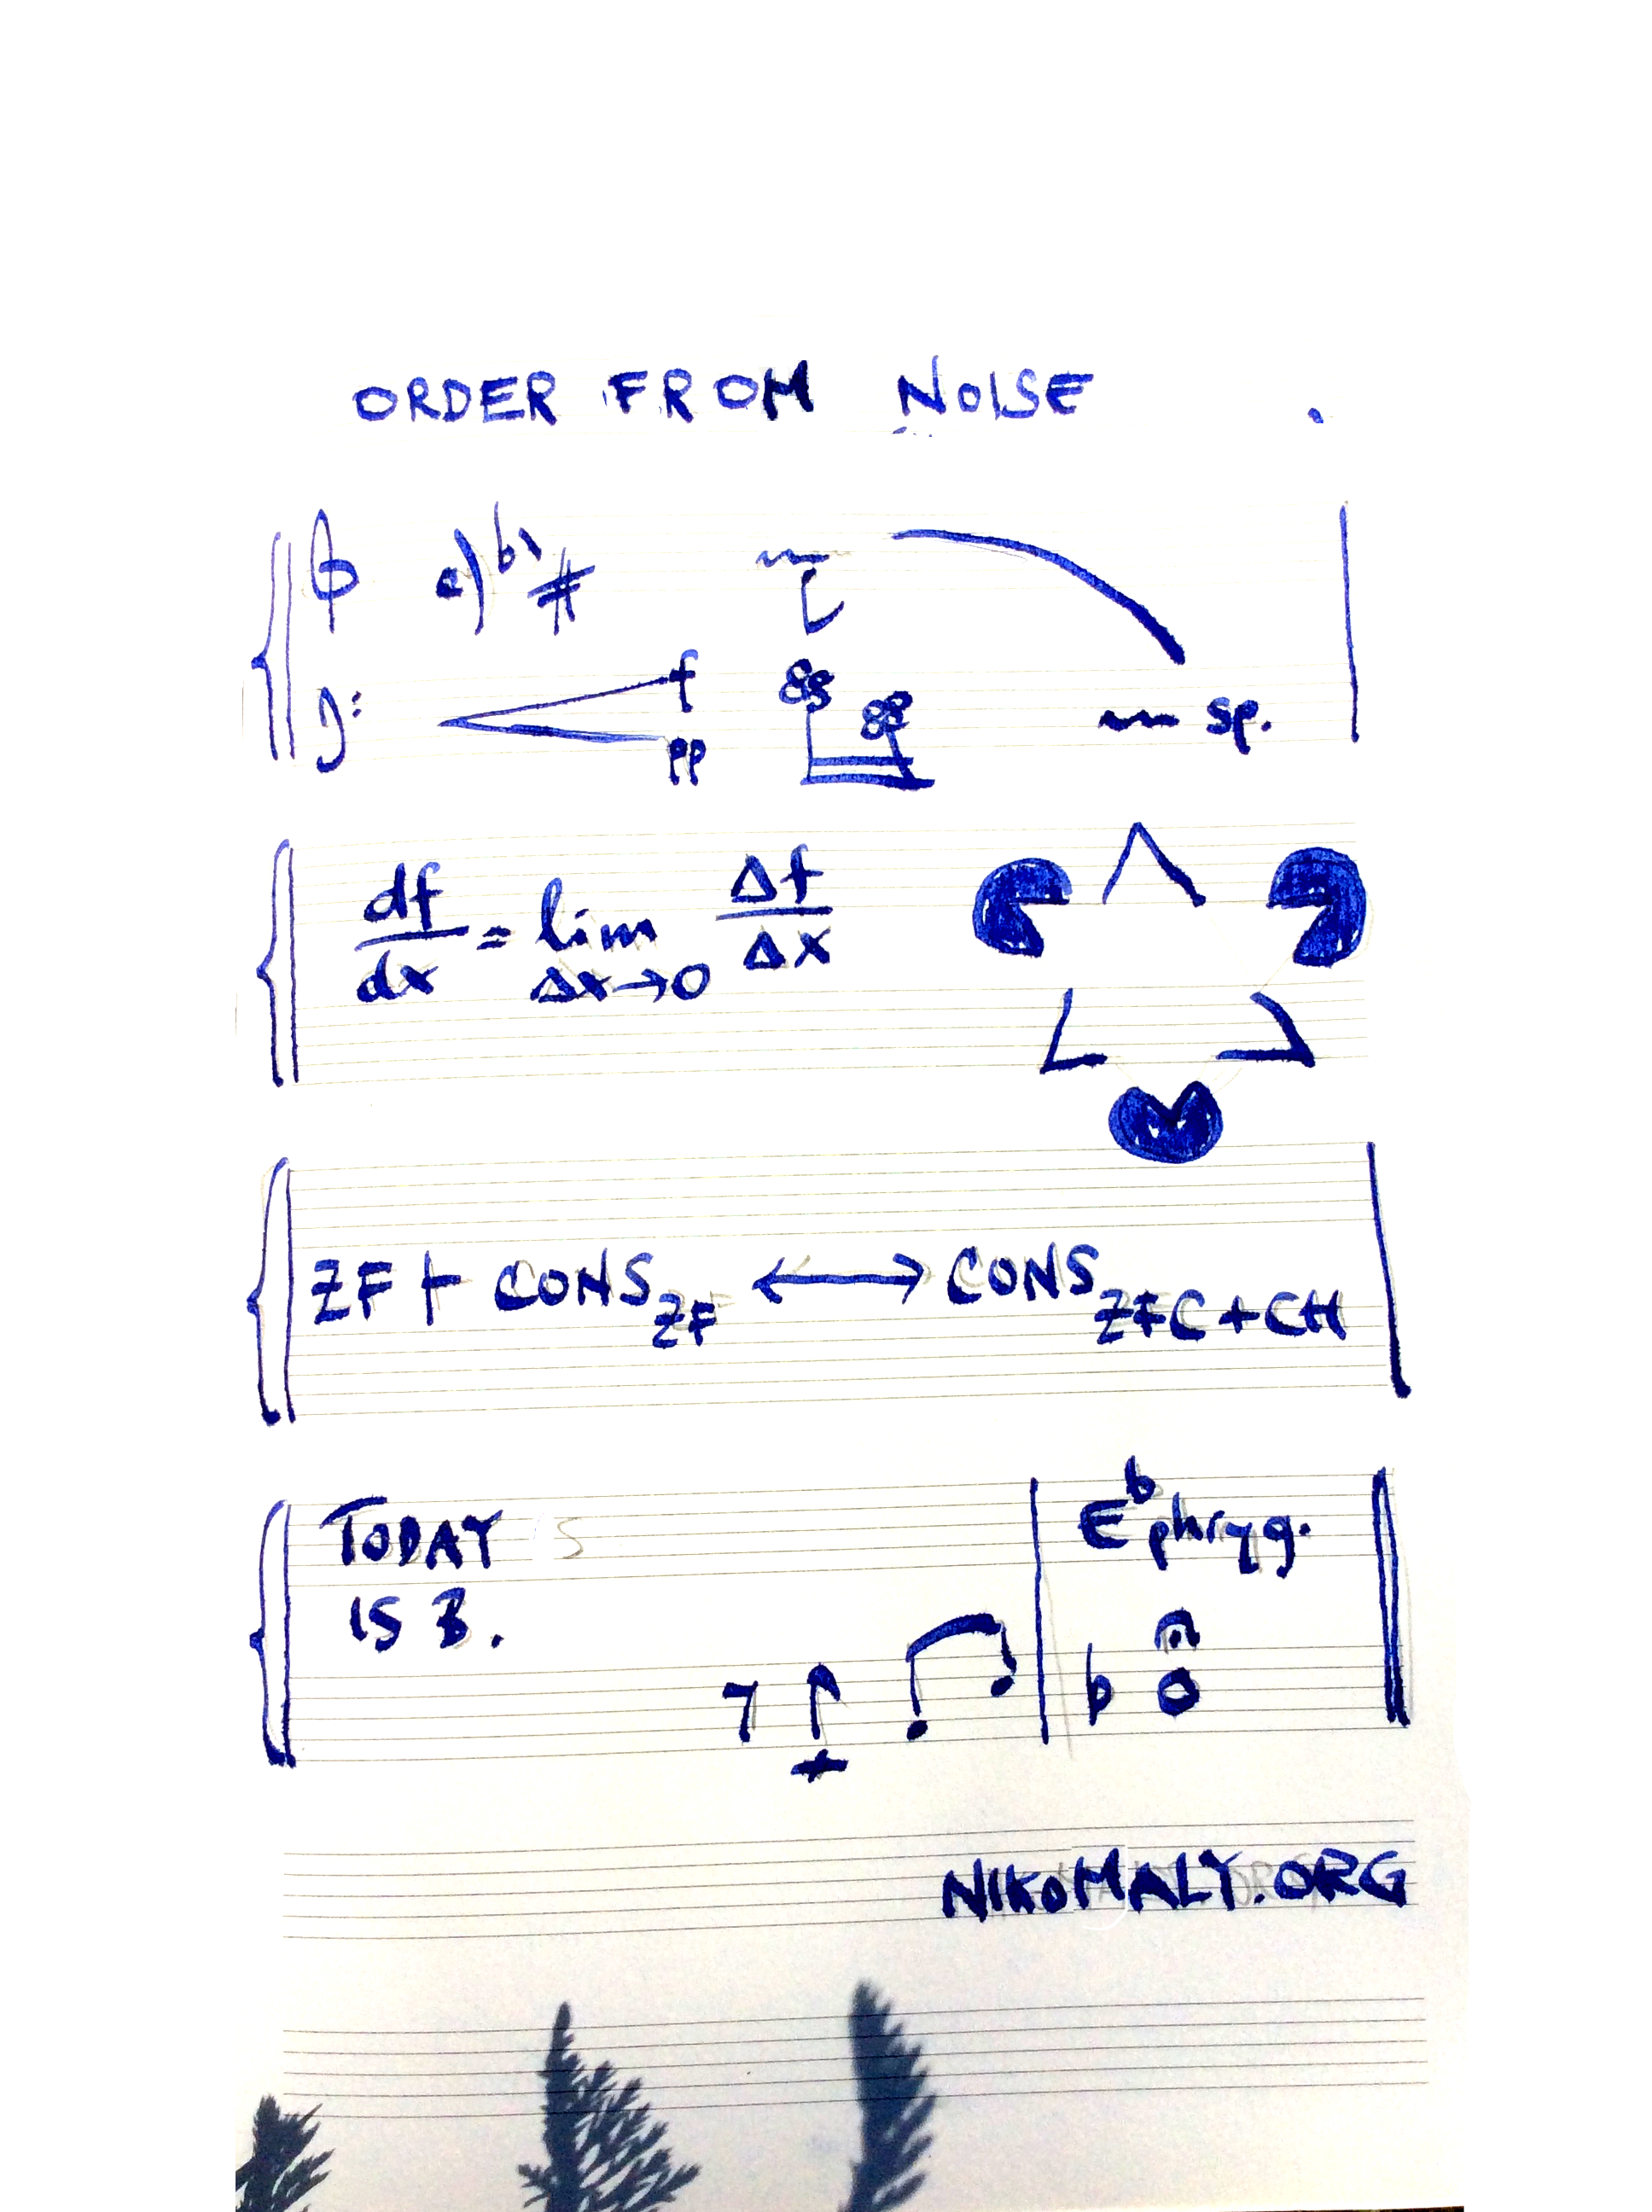 ORDER FROM NOISE .
a) b) #
f
pp
sp.
df/dx = lim Δx→0 Δf/Δx
ZF ⊢ CONS ZF ⟷ CONS ZFC + CH
TODAY
IS 3.
E♭ phryg.
NIKOMALY.ORG